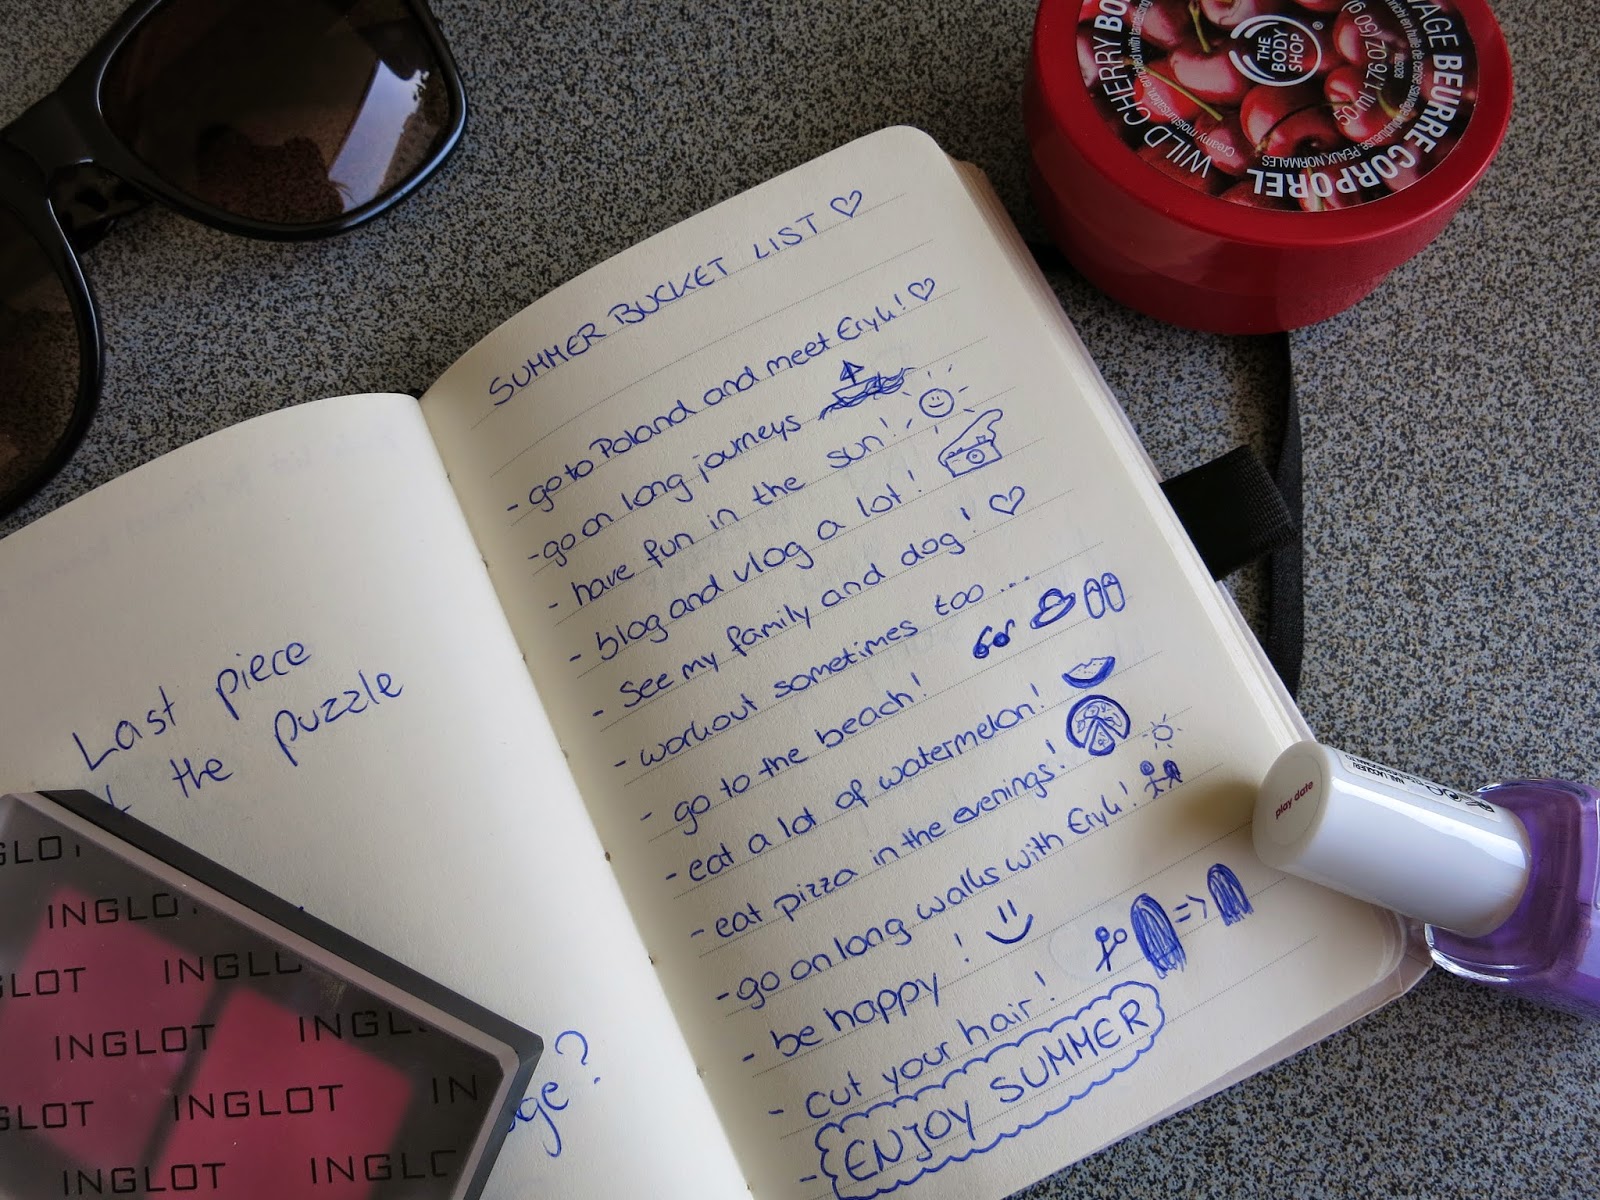 SUMMER BUCKET LIST
- go to Poland and meet Eryk!
- go on long journeys
- have fun in the sun!
- blog and vlog a lot!
- See my family and dog!
- workout sometimes too ...
- go to the beach!
- eat a lot of watermelon!
- eat pizza in the evenings!
- go on long walks with Eryk!
- be happy!
- cut your hair!
=>
- ENJOY SUMMER
Last piece
the puzzle
?
INGLOT
INGLOT
INGLOT
INGLOT
INGLOT
WILD CHERRY
THE BODY SHOP®
50 ml 1.76 OZ (50 g)
BEURRE CORPOREL
Creamy moisturisation, enriched with
PEAUX NORMALES
play date